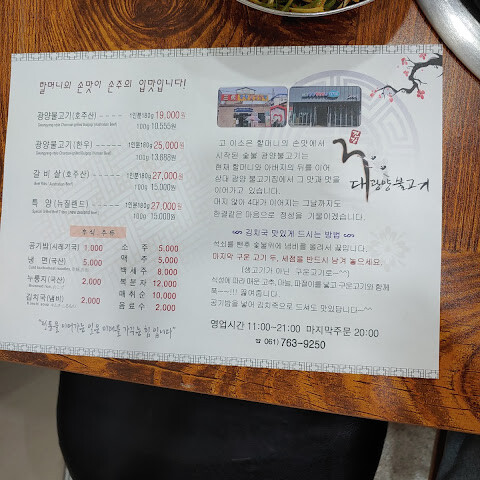 할머니의 손맛이 손주의 입맛입니다!
광양불고기(호주산) 1인분180g 19,000원
100g 10,555원
광양불고기(한우) 1인분180g 25,000원
100g 13,888원
갈 비 살(호주산) 1인분180g 27,000원
100g 15,000원
특 양(뉴질랜드) 1인분180g 27,000원
100g 15,000원
후식, 주류
공기밥(시레기국) 1,000
냉 면(국산) 5,000
누룽지(국산) 2,000
김치국(냄비) 2,000
소 주 5,000
맥 주 5,000
백세주 8,000
복분자 12,000
매취순 10,000
음료수 2,000
고 이소은 할머니의 손맛에서
시작된 숯불 광양불고기는
현재 할머니와 아버지의 뒤를 이어
삼대 광양 불고기집에서 그 맛과 멋을
이어가고 있습니다.
대지 않아 4대가 이어지는 그날까지도
한결같은 마음으로 정성을 기울이겠습니다.
대광양불고기
김치국 맛있게 드시는 방법
석쇠를 뺀후 숯불위에 냄비를 올려서 끓입니다.
마지막 구운 고기 두, 세점을 반드시 남겨 놓으세요.
(생고기가 아닌 구운고기로~^^)
식성에 따라 매운 고추, 마늘, 파절이를 넣고 구운고기와 함께
푹~~!!! 끓여줍니다.
공기밥을 넣어 김치죽으로 드셔도 맛있답니다~^^
영업시간 11:00~21:00 마지막주문 20:00
☎ 061) 763-9250